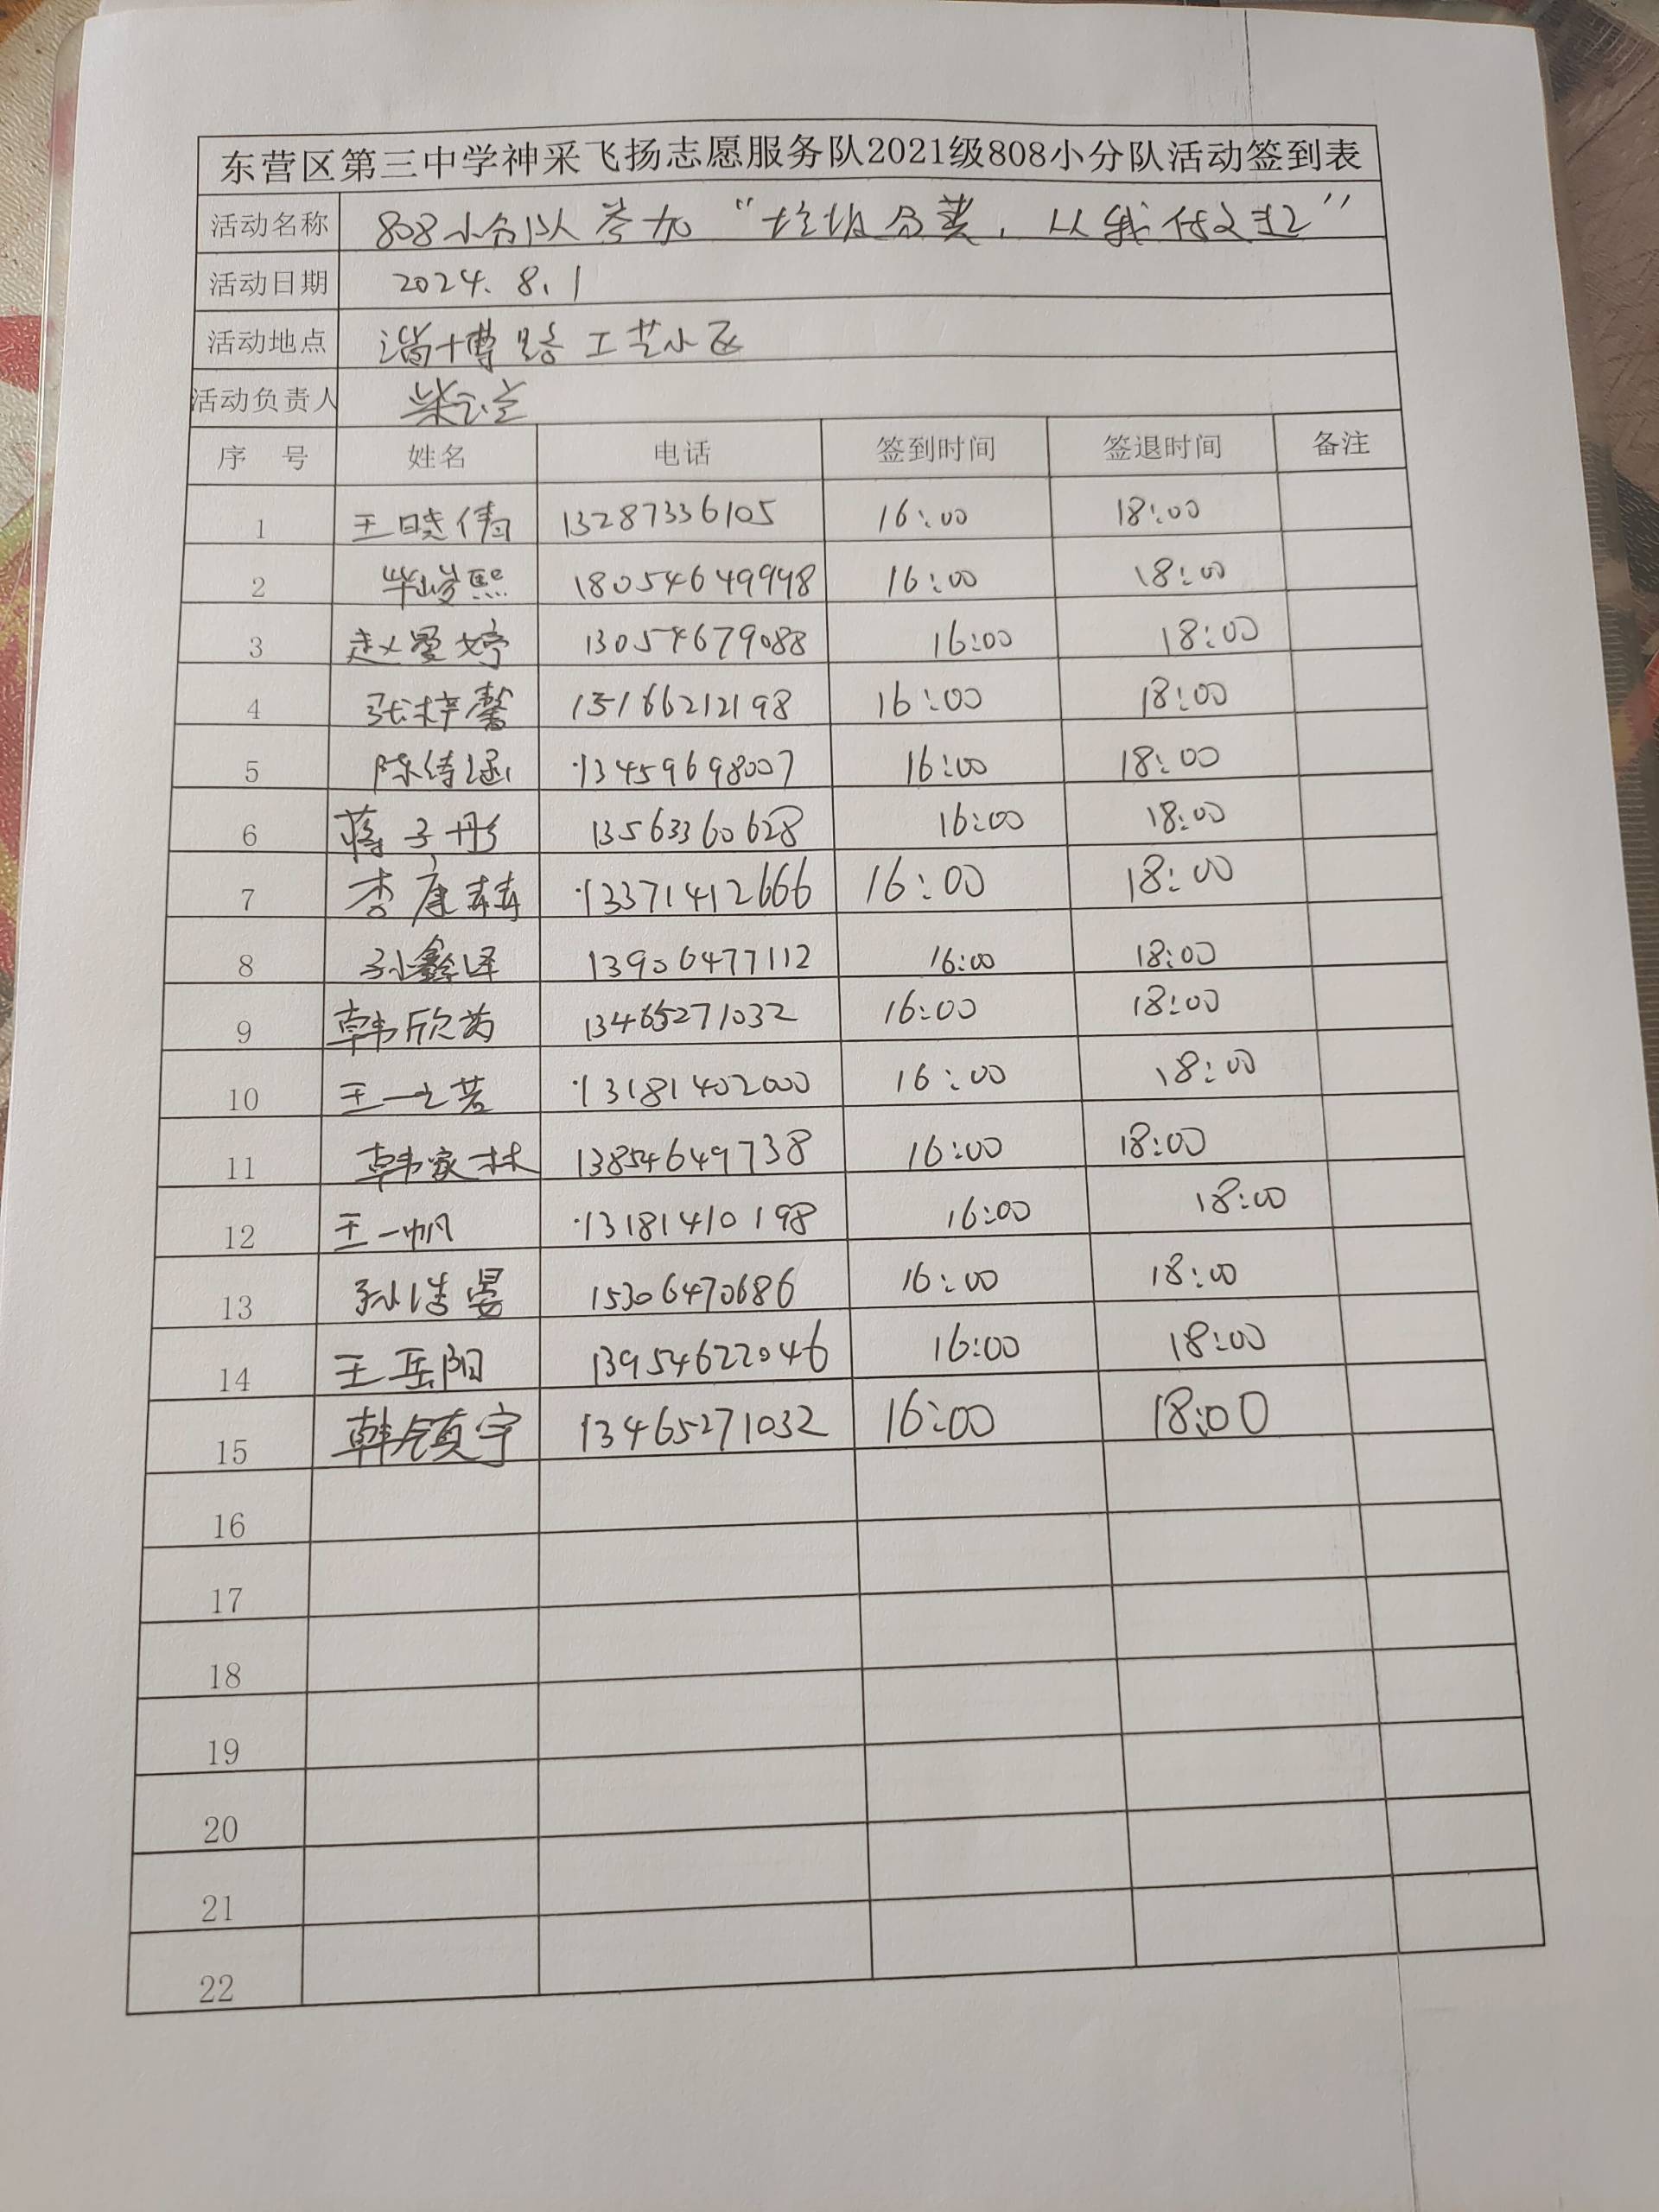 东营区第三中学神采飞扬志愿服务队2021级808小分队活动签到表
活动名称 808小分队参加“垃圾分类，从我做起”
活动日期 2024.8.1
活动地点 淄博路工艺小区
活动负责人
序 号 姓名 电话 签到时间 签退时间 备注
1 王晓倩 13287336105 16:00 18:00
2 毕峻熙 18054649998 16:00 18:00
3 赵曼婷 13054679088 16:00 18:00
4 张梓馨 15166212198 16:00 18:00
5 陈绮涵 13459698007 16:00 18:00
6 蒋子彤 13563360628 16:00 18:00
7 李康 13371412666 16:00 18:00
8 孙鑫泽 13906477112 16:00 18:00
9 韩欣芮 13465271032 16:00 18:00
10 王一之若 13181402000 16:00 18:00
11 韩家林 13854649738 16:00 18:00
12 王一帆 13181410198 16:00 18:00
13 孙浩晏 15306470686 16:00 18:00
14 王岳阳 13954622046 16:00 18:00
15 韩镇宇 13465271032 16:00 18:00
16
17
18
19
20
21
22